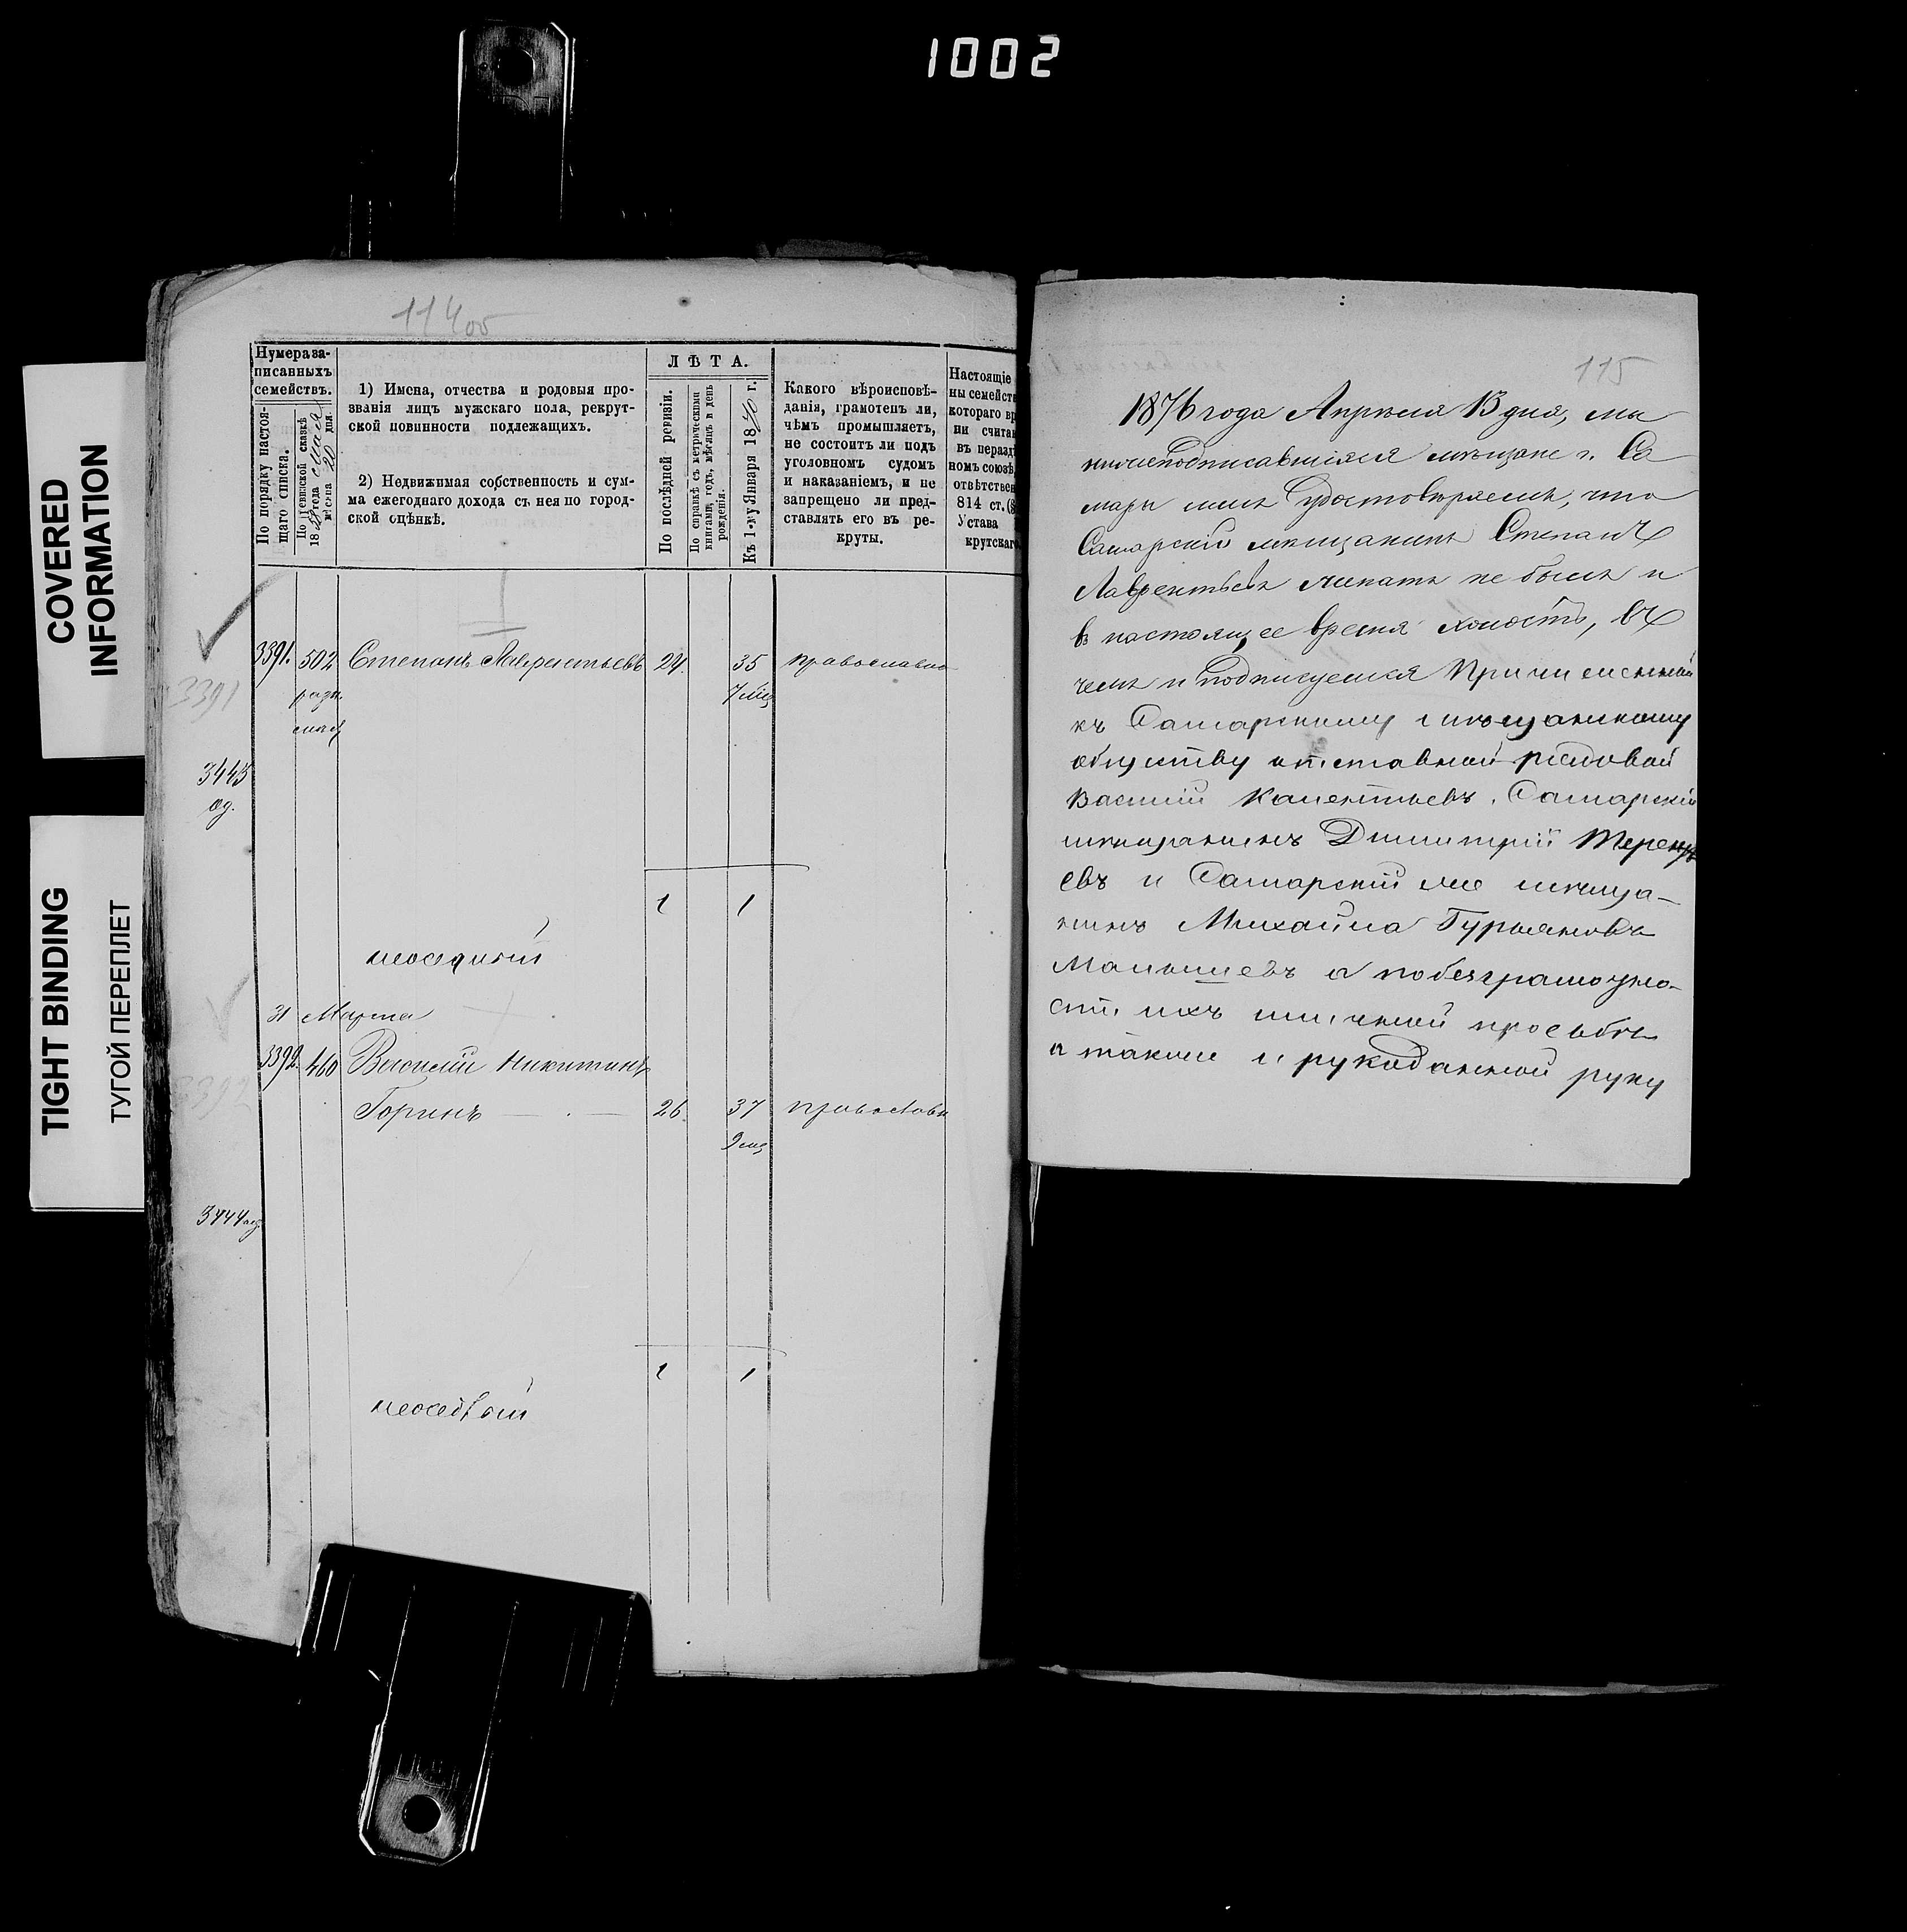 1002
COVERED
INFORMATION
TIGHT BINDING
ТУГОЙ ПЕРЕПЛЕТ
114 об
Нумера за-
писанныхъ
семействъ.
По порядку настоя-
щаго списка.
По ревизской сказкѣ
18 58 года Мая
мѣсяца 20 дня.
1) Имена, отчества и родовыя про-
званія лицъ мужскаго пола, рекрут-
ской повинности подлежащихъ.
2) Недвижимая собственность и сум-
ма ежегоднаго дохода съ нея по город-
ской оцѣнкѣ.
ЛѢТА.
По послѣдней ревизіи.
По справкѣ съ метрическими
книгами, годъ, мѣсяцъ и день
рожденія.
Къ 1-му Января 1870 г.
Какого вѣроисповѣ-
данія, грамотенъ ли,
чѣмъ промышляетъ,
не состоитъ ли подъ
уголовномъ судомъ
и наказаніемъ, и не
запрещено ли пред-
ставлять его въ ре-
круты.
Настоящіе
ны семейств
котораго вр
ни считаю
въ неразд
номъ союзѣ
отвѣтствен
814 ст. (§
Устава
крутскаго
3391. 502 Степанъ Лаврентьевъ 24. 35 православно
3391
7 мѣц
3443
од.
1 1
неоседлый
31 Марта
3392. 460 Василій Никитинъ
3392
Горинъ 26. 37 православн
9 мц
3444 од.
1 1
неоседлый
115
1876 года Апрѣля 13 дня, мы
нижеподписавшіяся мѣщане г. Са
мары симъ удостовѣряемъ, что
Самарскій мѣщанинъ Степанъ
Лаврентьевъ женатъ не былъ и
въ настоящее время холостъ, въ
чемъ и подписуемся Причисленный
къ Самарскому мѣщанскому
обществу отставной рядовой
Василій Каментьевъ, Самарскій
мѣщанинъ Димитрій Теренть
евъ и Самарскій же мѣща-
нинъ Михайла Гурьяновъ
Малышевъ а по безграмотно-
сти ихъ личной просьбѣ
а также и рукоданной руку